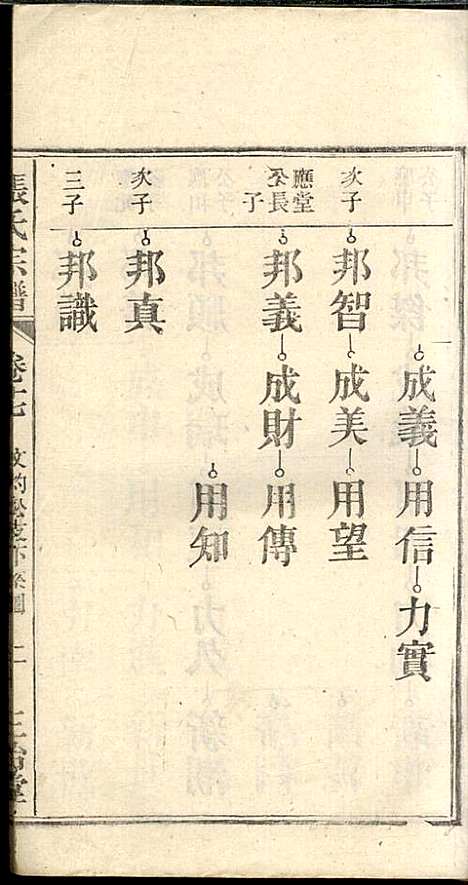 成義 用信 力實
次子 邦智 成美 用望
應堂公長子 邦義 成財 用傳
用知
次子 邦真
三子 邦識
張氏宗譜 卷十七 二